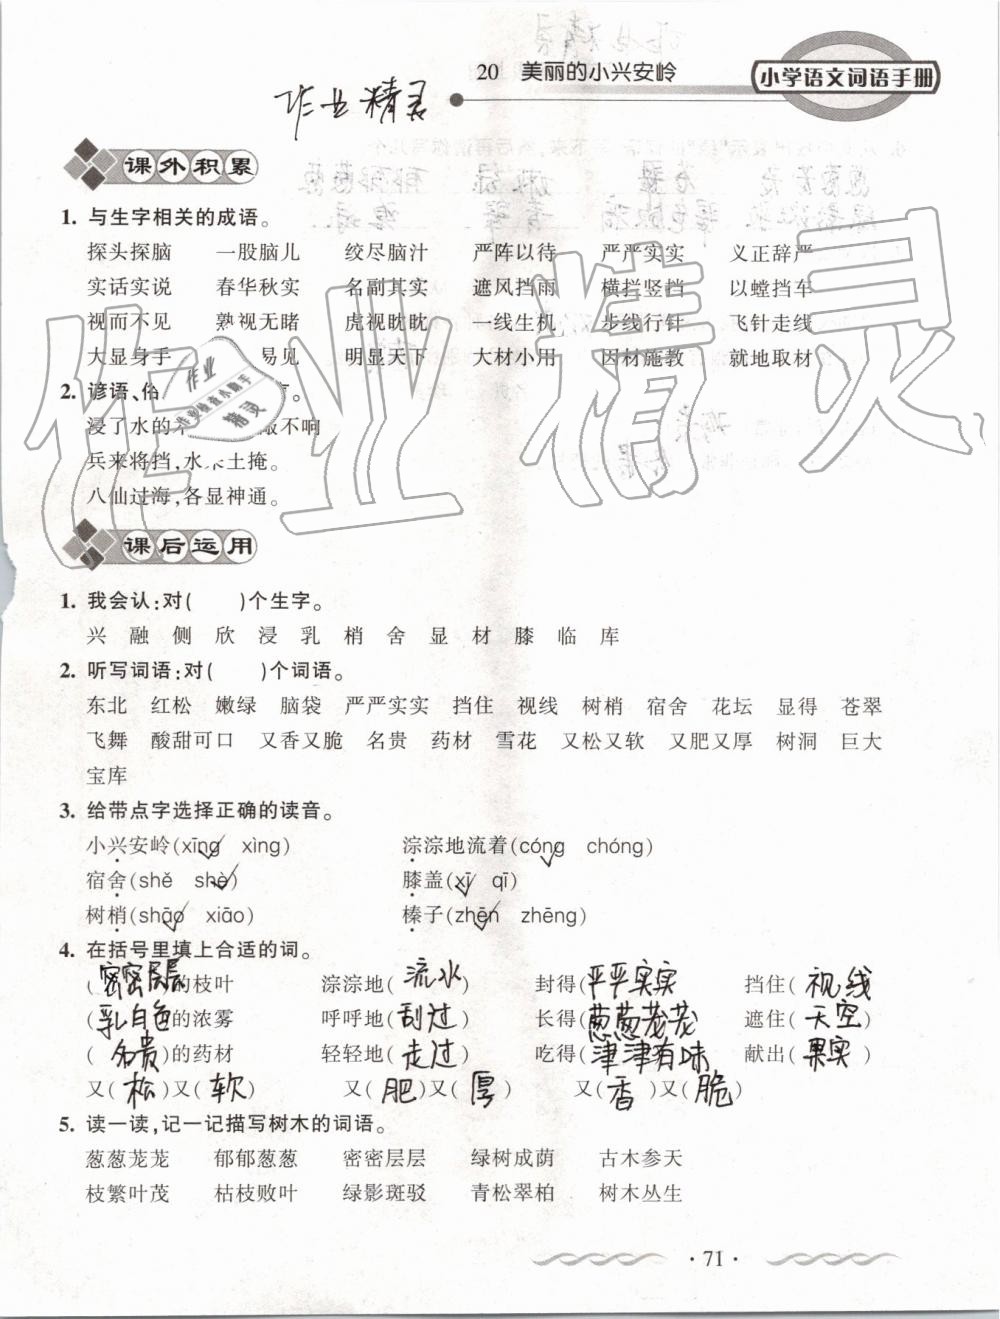 20 美丽的小兴安岭
小学语文词语手册
作业精灵
课外积累
1. 与生字相关的成语。
探头探脑 一股脑儿 绞尽脑汁 严阵以待 严严实实 义正辞严
实话实说 春华秋实 名副其实 遮风挡雨 横拦竖挡 以螳挡车
视而不见 熟视无睹 虎视眈眈 一线生机 步线行针 飞针走线
大显身手 易见 明显天下 大材小用 因材施教 就地取材
2. 谚语、俗
浸了水的 不响
兵来将挡,水来土掩。
八仙过海,各显神通。
作业精灵
课后运用
1. 我会认:对( )个生字。
兴 融 侧 欣 浸 乳 梢 舍 显 材 膝 临 库
2. 听写词语:对( )个词语。
东北 红松 嫩绿 脑袋 严严实实 挡住 视线 树梢 宿舍 花坛 显得 苍翠
飞舞 酸甜可口 又香又脆 名贵 药材 雪花 又松又软 又肥又厚 树洞 巨大
宝库
3. 给带点字选择正确的读音。
小兴安岭(xīng✓ xìng) 淙淙地流着(cóng✓ chóng)
宿舍(shě shè✓) 膝盖(xī✓ qī)
树梢(shāo✓ xiāo) 榛子(zhēn✓ zhēng)
4. 在括号里填上合适的词。
(密密层层的枝叶 淙淙地(流水) 封得(严严实实) 挡住(视线)
(乳白色)的浓雾 呼呼地(刮过) 长得(葱葱茏茏) 遮住(天空)
(名贵)的药材 轻轻地(走过) 吃得(津津有味) 献出(果实)
又(松)又(软) 又(肥)又(厚) 又(香)又(脆)
5. 读一读,记一记描写树木的词语。
葱葱茏茏 郁郁葱葱 密密层层 绿树成荫 古木参天
枝繁叶茂 枯枝败叶 绿影斑驳 青松翠柏 树木丛生
· 71 ·